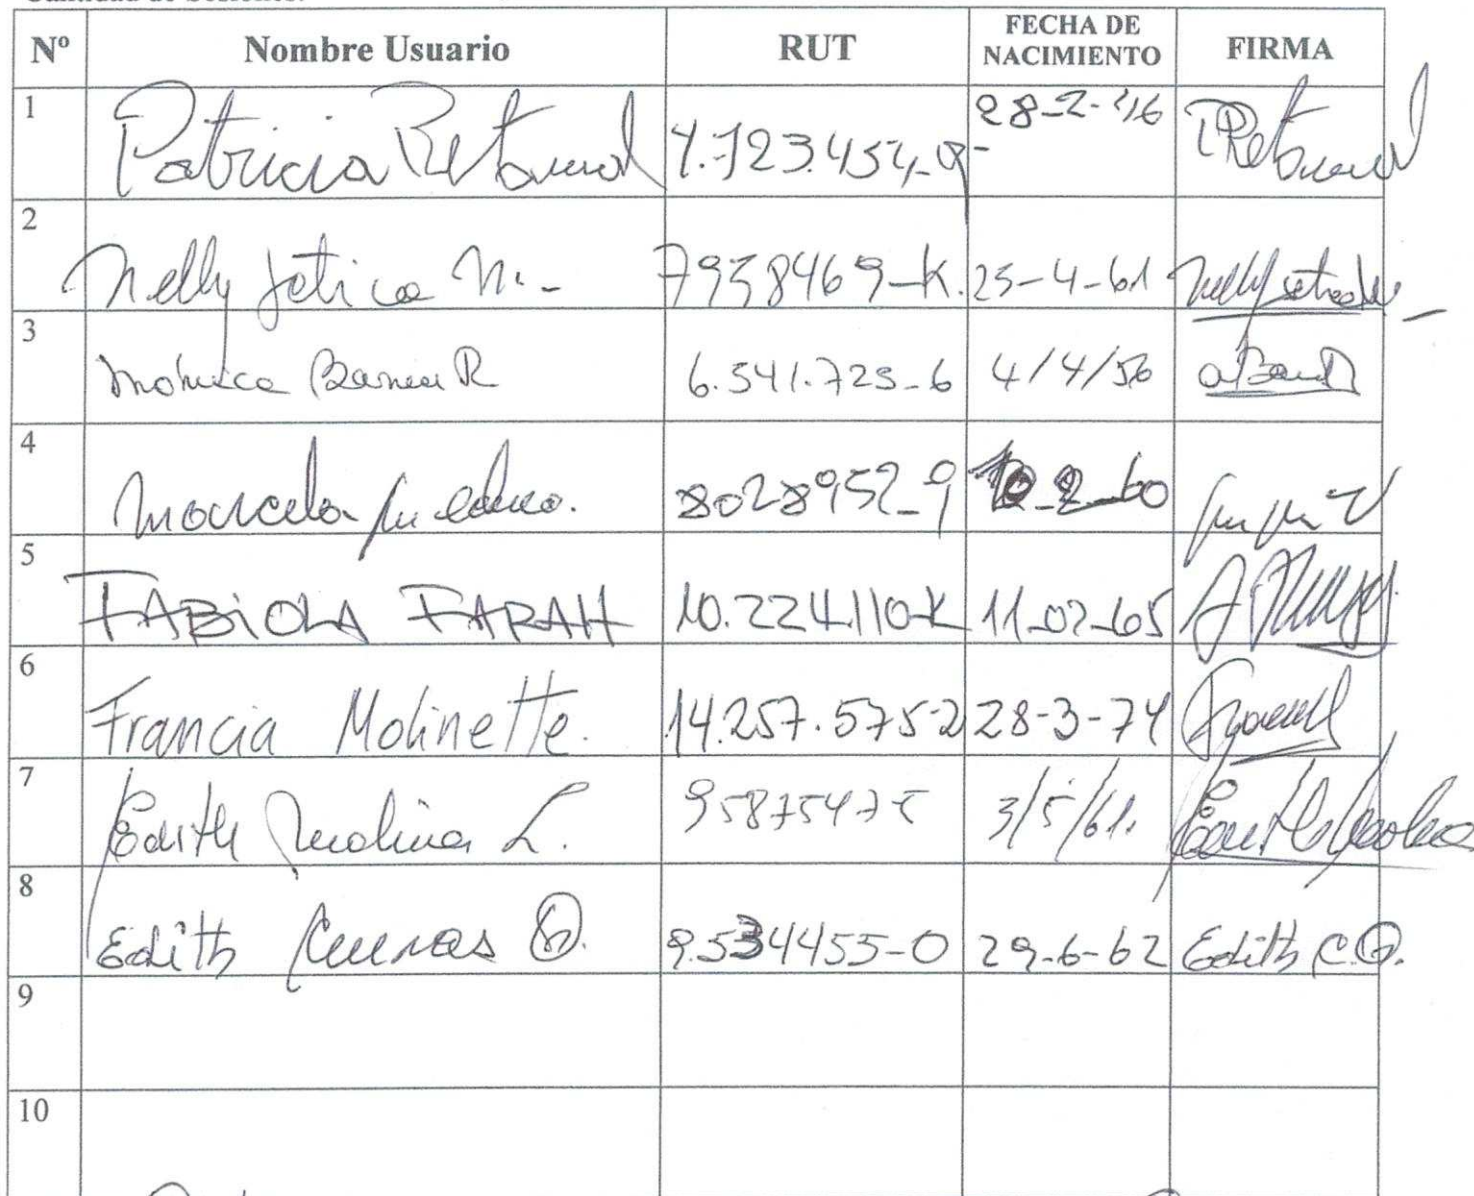 Cantidad de Sesiones:
Nº Nombre Usuario RUT FECHA DE NACIMIENTO FIRMA
1 Patricia Retamal 4.123.454-9 28-2-46 PRetamal
2 Nelly Jetica M.- 7938469-K. 25-4-61 Nelly
3 Monica R 6.541.725-6 4/4/56
4 Marcela 8028952-9 -2-60
5 FABIOLA FARAH 10.224.110-K 11-02-65
6 Francia Molinette. 14.257.575-2 28-3-74
7 Edith Molina L. 95875475 3/5/61. Edith Molina
8 Edith Cuevas O. 9.534455-0 29-6-62 Edith C.O.
9
10